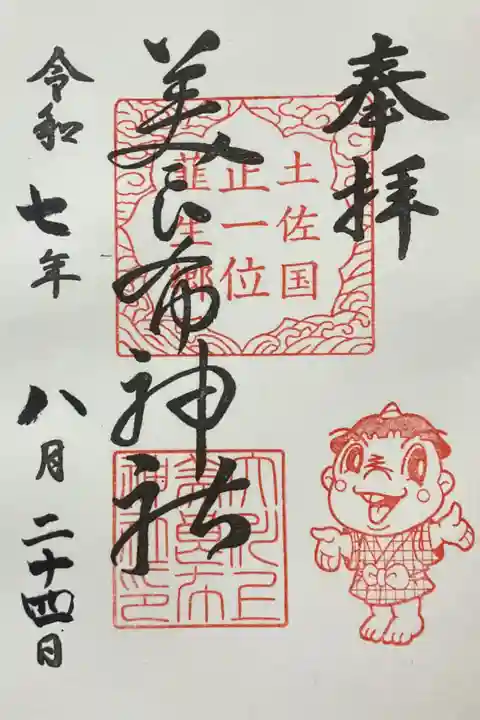 奉拝
土佐国
正一位
韮生郷
美良布神社
令和七年八月二十四日